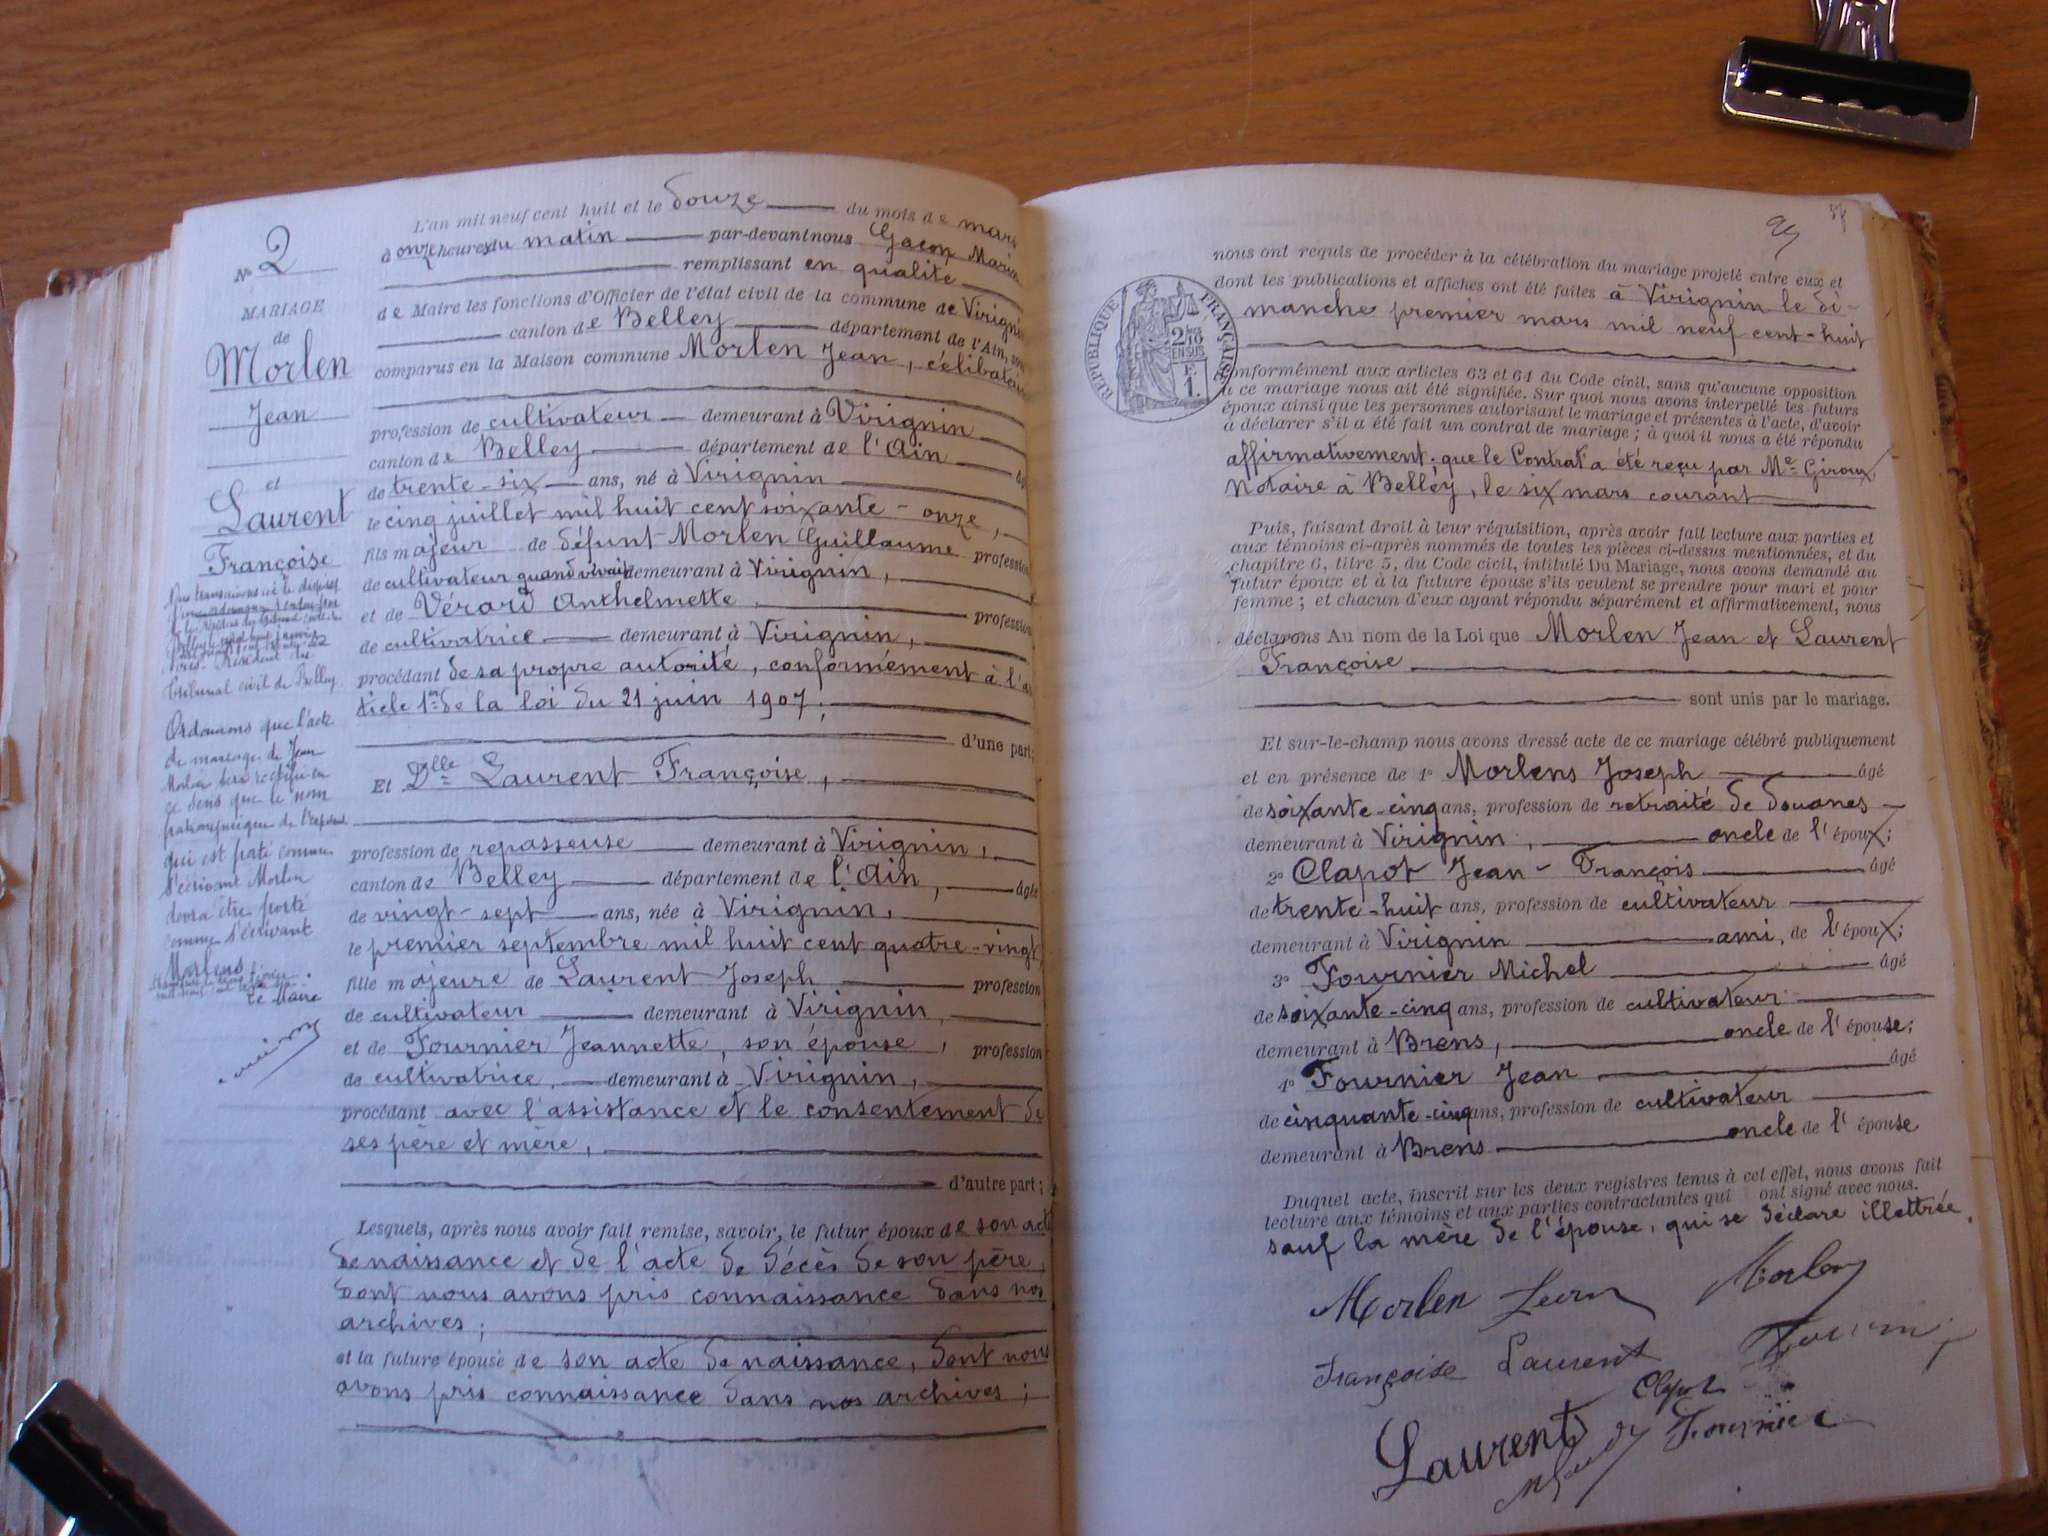 No 2
MARIAGE
de
Morlen
Jean
et
Laurent
Françoise
Tribunal civil de Belley
Ordonnons que l'acte
de mariage de Jean
Morlen sera rectifié en
ce sens que le nom
patronymique de l'époux
qui est porté comme
s'écrivant Morlen
devra être porté
comme s'écrivant
Morlens
Le Maire
L'an mil neuf cent huit et le douze du mois de mars
à onze heures du matin par-devant nous Gacon Marin
remplissant en qualité
de Maire les fonctions d'Officier de l'état civil de la commune de Virignin
canton de Belley département de l'Ain, sont
comparus en la Maison commune Morlen Jean, célibataire
profession de cultivateur demeurant à Virignin
canton de Belley département de l'Ain
de trente-six ans, né à Virignin
le cinq juillet mil huit cent soixante-onze,
fils majeur de défunt Morlen Guillaume profession
de cultivateur quand vivait demeurant à Virignin,
et de Vérard Anthelmette, profession
de cultivatrice demeurant à Virignin,
procédant de sa propre autorité, conformément à l'ar
ticle 1er de la loi du 21 juin 1907;
d'une part;
Et Dlle Laurent Françoise,
profession de repasseuse demeurant à Virignin,
canton de Belley département de l'Ain, âgée
de vingt-sept ans, née à Virignin,
le premier septembre mil huit cent quatre-vingt
fille majeure de Laurent Joseph profession
de cultivateur demeurant à Virignin,
et de Fournier Jeannette, son épouse, profession
de cultivatrice, demeurant à Virignin,
procédant avec l'assistance et le consentement de
ses père et mère,
d'autre part;
Lesquels, après nous avoir fait remise, savoir, le futur époux de son acte
de naissance et de l'acte de décès de son père,
dont nous avons pris connaissance dans nos
archives;
et la future épouse de son acte de naissance, dont nous
avons pris connaissance dans nos archives;
nous ont requis de procéder à la célébration du mariage projeté entre eux et
dont les publications et affiches ont été faites à Virignin le di-
manche premier mars mil neuf cent-huit
RÉPUBLIQUE FRANÇAISE
2/10
EN SUS
F.
1.
conformément aux articles 63 et 64 du Code civil, sans qu'aucune opposition
à ce mariage nous ait été signifiée. Sur quoi nous avons interpellé les futurs
époux ainsi que les personnes autorisant le mariage et présentes à l'acte, d'avoir
à déclarer s'il a été fait un contrat de mariage; à quoi il nous a été répondu
affirmativement. que le Contrat a été reçu par Me Giroux,
Notaire à Belley, le six mars courant
Puis, faisant droit à leur réquisition, après avoir fait lecture aux parties et
aux témoins ci-après nommés de toutes les pièces ci-dessus mentionnées, et du
chapitre 6, titre 5, du Code civil, intitulé Du Mariage, nous avons demandé au
futur époux et à la future épouse s'ils veulent se prendre pour mari et pour
femme; et chacun d'eux ayant répondu séparément et affirmativement, nous
déclarons Au nom de la Loi que Morlen Jean et Laurent
Françoise
sont unis par le mariage.
Et sur-le-champ nous avons dressé acte de ce mariage célébré publiquement
et en présence de 1° Morlens Joseph âgé
de soixante-cinq ans, profession de retraité de douanes
demeurant à Virignin, oncle de l'époux;
2° Clapot Jean-François âgé
de trente-huit ans, profession de cultivateur
demeurant à Virignin ami, de l'époux;
3° Fournier Michel âgé
de soixante-cinq ans, profession de cultivateur
demeurant à Brens, oncle de l'épouse;
4° Fournier Jean âgé
de cinquante-cinq ans, profession de cultivateur
demeurant à Brens oncle de l'épouse
Duquel acte, inscrit sur les deux registres tenus à cet effet, nous avons fait
lecture aux témoins et aux parties contractantes qui ont signé avec nous.
sauf la mère de l'épouse, qui se déclare illettrée.
Morlen Jean Morlen
Françoise Laurent
Clapot
Laurent Fournier